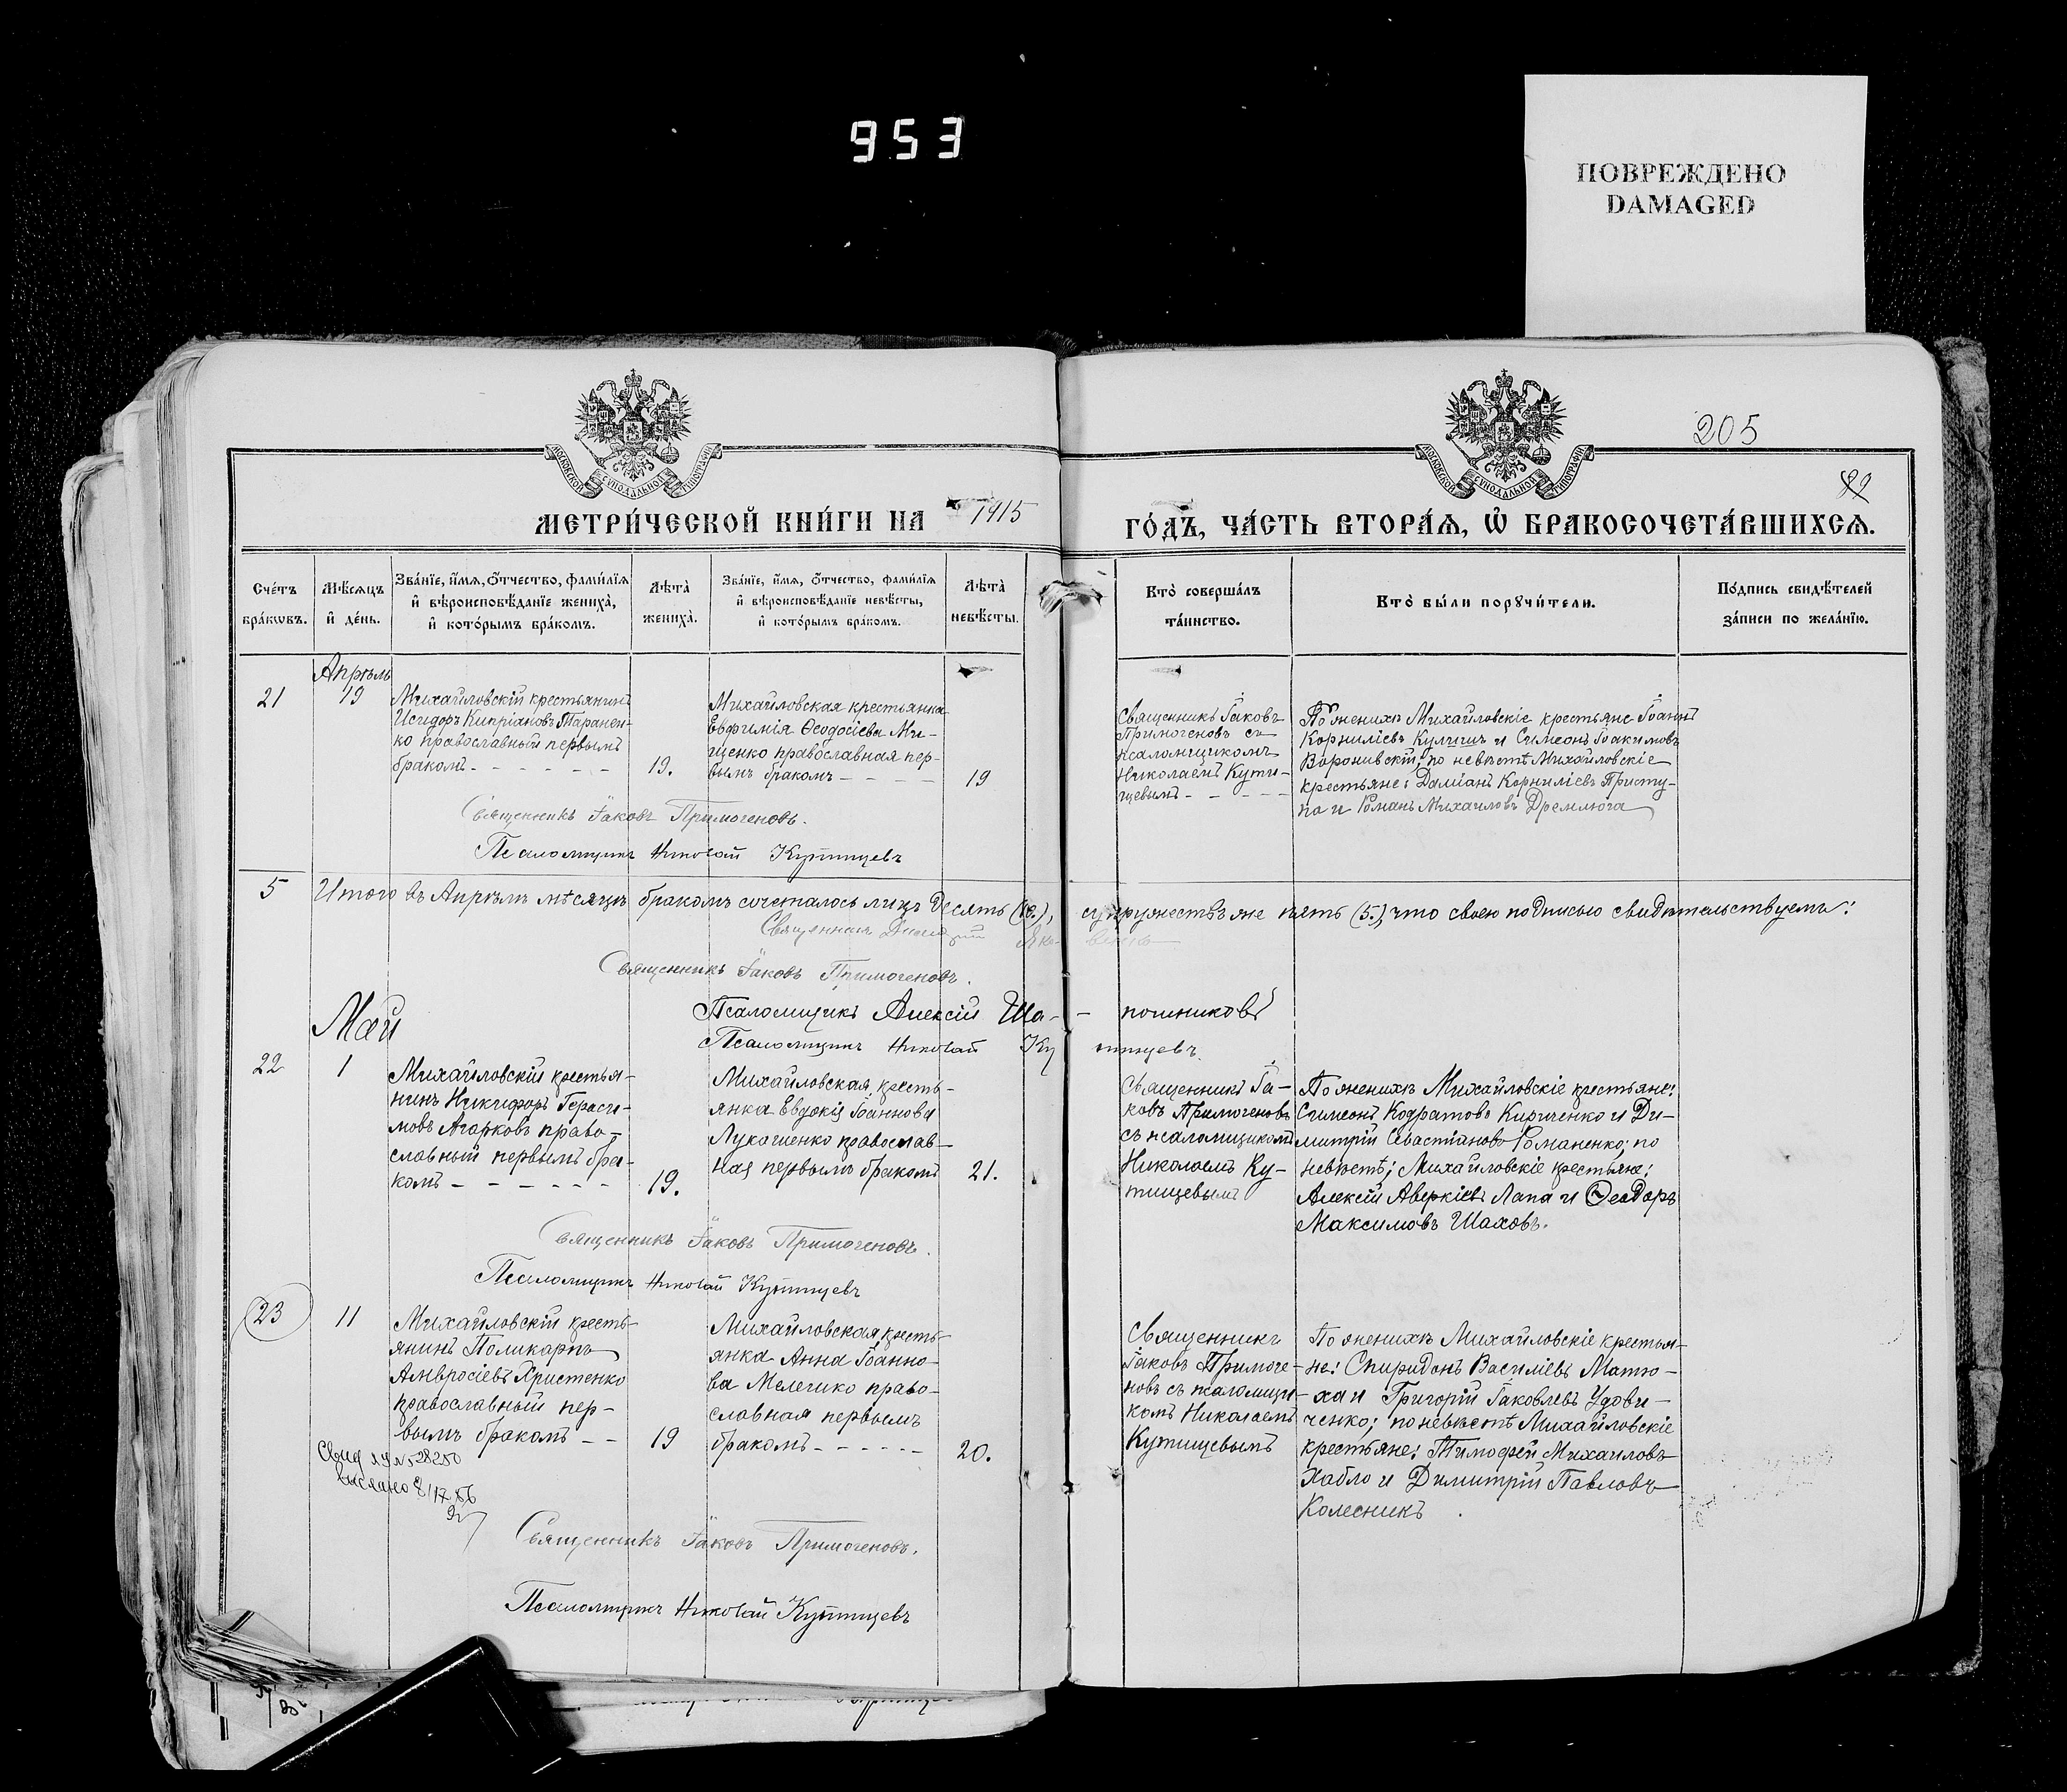 953
ПОВРЕЖДЕНО
DAMAGED
205
МОСКОВСКОЙ СУНОДАЛЬНОЙ ТИПОГРАФІИ
МОСКОВСКОЙ СУНОДАЛЬНОЙ ТИПОГРАФІИ
МЕТРИ́ЧЕСКОЙ КНИ́ГИ НА 1915 ГО́ДЪ, ЧА́СТЬ ВТОРА́Ѧ, Ѡ҆ БРАКОСОЧЕТА́ВШИХСѦ.
Сче́тъ бра́кѡвъ.
Мѣ́сяцъ и҆ де́нь.
Зва́нїе, и҆́мѧ, ѻ҆́тчество, фами́лїѧ и҆ вѣроисповѣ́данїе жениха̀, и҆ кото́рымъ бра́комъ.
Лѣта̀ жениха̀.
Зва́нїе, и҆́мѧ, ѻ҆́тчество, фами́лїѧ и҆ вѣроисповѣ́данїе невѣ́сты, и҆ кото́рымъ бра́комъ.
Лѣта̀ невѣ́сты.
Кто̀ соверша́лъ та́инство.
Кто̀ бы́ли порꙋчи́тели.
По́дпись свидѣ́телей за́писи по жела́нїю.
Апрѣль
21
19
Михайловскій крестьянинъ
Исидоръ Кипріановъ Таранен-
ко православный первымъ
бракомъ - - - - - -
19.
Михайловская крестьянка
Евфимія Ѳеодосіева Ми-
щенко православная пер-
вымъ бракомъ - - - -
19
Священникъ Іаковъ
Примогеновъ съ
псаломщикомъ
Николаемъ Купи-
щевымъ - - - -
По женихѣ Михайловскіе крестьяне Іоаннъ
Корниліевъ Кулишъ и Симеонъ Іоакимовъ
Воронивскій; по невѣстѣ Михайловскіе
крестьяне: Даміанъ Корниліевъ Присту-
па и Романъ Михаиловъ Дремлюга
Священникъ Іаковъ Примогеновъ.
Псаломщикъ Николай Купищевъ
5
Итого въ Апрѣлѣ мѣсяцѣ бракомъ сочеталось лицъ десять (10.), супружествъ же пять (5.), что своею подписью свидѣтельствуемъ:
Священникъ
Священникъ Іаковъ Примогеновъ.
Псаломщикъ Алексій Ша- пошниковъ
Псаломщикъ Николай Ку пищевъ.
Май
22
1
Михайловскій крестья-
нинъ Никифоръ Гераси-
мовъ Агарковъ право-
славный первымъ бра-
комъ - - - - - -
19.
Михайловская кресть-
янка Евдокія Іоаннова
Лукашенко православ-
ная первымъ бракомъ
21.
Священникъ Іа-
ковъ Примогеновъ
съ псаломщикомъ
Николаемъ Ку-
пищевымъ
По женихѣ Михайловскіе крестьяне:
Симеонъ Кодратовъ Кириченко и Ди-
митрій Севастіановъ Романенко; по
невѣстѣ; Михайловскіе крестьяне:
Алексій Аверкіевъ Лапа и Ѳеодоръ
Максимовъ Шаховъ.
Священникъ Іаковъ Примогеновъ.
Псаломщикъ Николай Купищевъ
23
11
Михайловскій кресть-
янинъ Поликарпъ
Амвросіевъ Христенко
православный пер-
вымъ бракомъ - -
19
Михайловская кресть-
янка Анна Іоанно-
ва Мелешко право-
славная первымъ
бракомъ - - - - - -
20.
Священникъ
Іаковъ Примоге-
новъ съ псаломщи-
комъ Николаемъ
Купищевымъ
По женихѣ Михайловскіе крестья-
не: Спиридонъ Василіевъ Матю-
ха и Григорій Іаковлевъ Удови-
ченко; по невѣстѣ Михайловскіе
крестьяне: Тимофей Михаиловъ
Хабло и Димитрій Павловъ
Колесникъ.
выслано
Священникъ Іаковъ Примогеновъ.
Псаломщикъ Николай Купищевъ